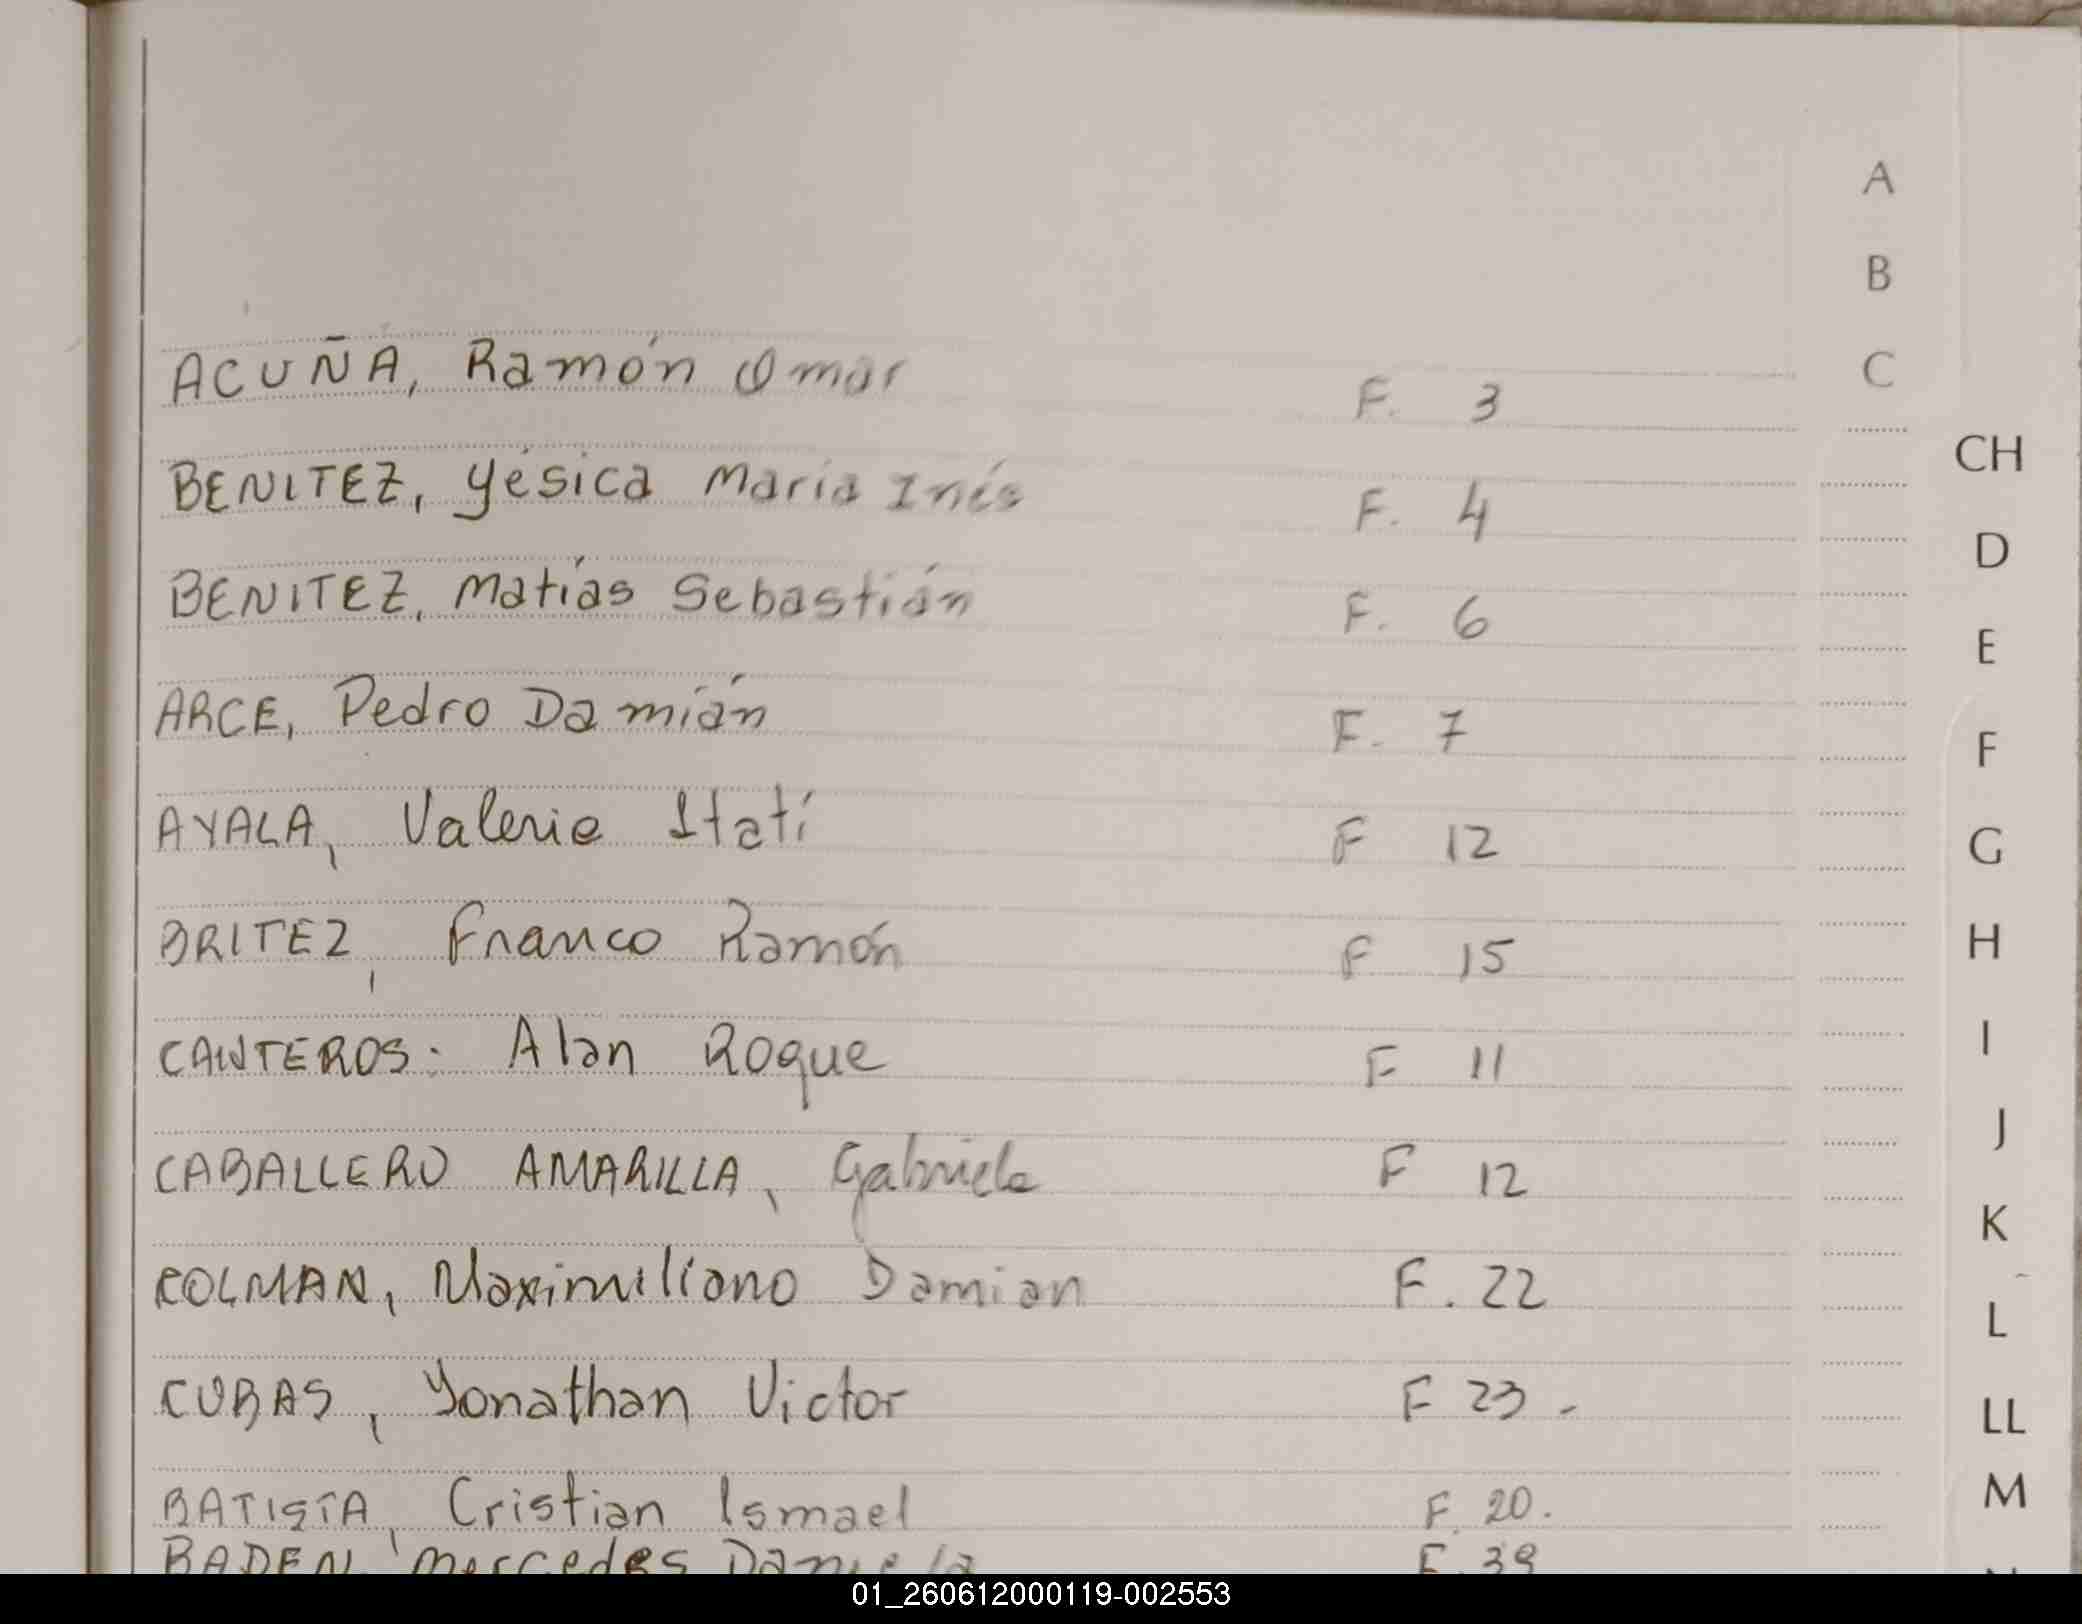 A
B
ACUÑA, Ramón Omar F. 3 C
CH
BENITEZ, Yésica María Inés F. 4
D
BENITEZ, Matías Sebastián F. 6
E
ARCE, Pedro Damián F. 7
F
AYALA, Valeria Itatí F 12
G
BRITEZ, Franco Ramón F 15
H
CANTEROS: Alan Roque F 11
I
J
CABALLERO AMARILLA, Gabriela F 12
K
COLMAN, Maximiliano Damian F. 22
L
CUBAS, Yonathan Victor F 23 -
LL
BATISTA, Cristian Ismael F. 20.
M
BADEN, Mercedes Daniela F. 39
01_260612000119-002553